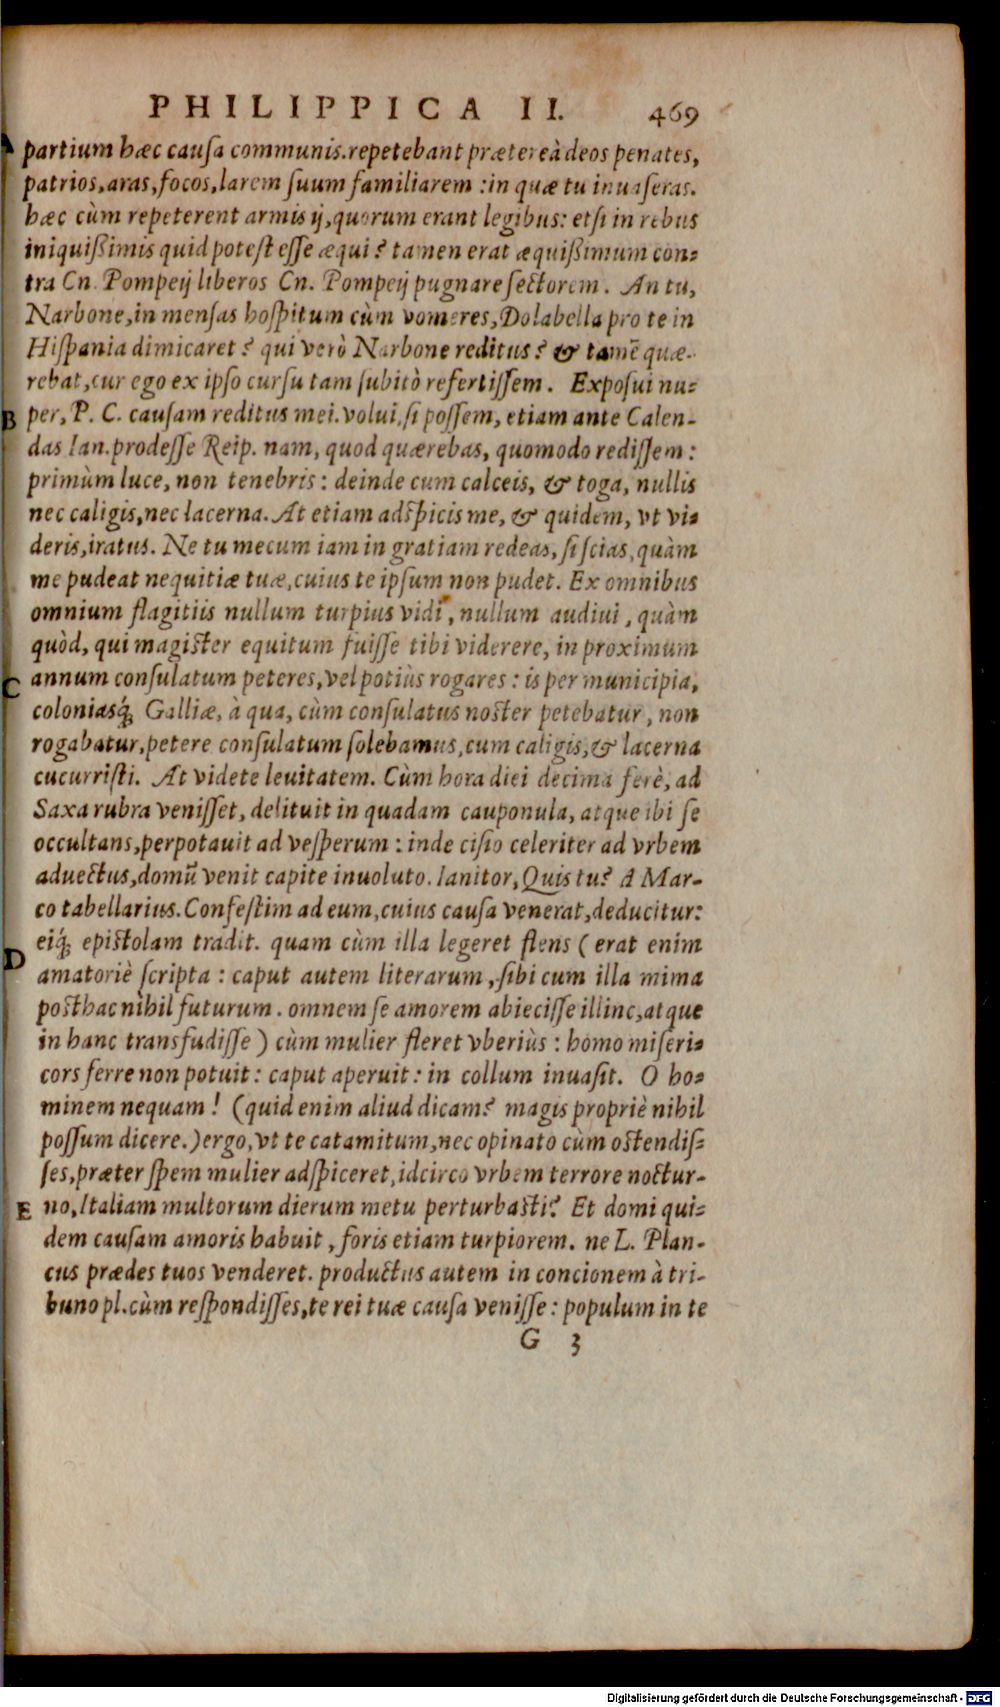 PHILIPPICA II. 469
A partium hæc causa communis. repetebant prætereà deos penates,
patrios, aras, focos, larem suum familiarem : in quæ tu inuaseras.
hæc cùm repeterent armis ij, quorum erant legibus: etsi in rebus
iniquißimis quid potest esse æqui? tamen erat æquißimum con-
tra Cn. Pompeij liberos Cn. Pompeij pugnare sectorem. An tu,
Narbone, in mensas hospitum cùm vomeres, Dolabella pro te in
Hispania dimicaret? qui verò Narbone reditus? & tamē quæ-
rebat, cur ego ex ipso cursu tam subitò refertissem. Exposui nu-
B per, P. C. causam reditus mei. volui, si possem, etiam ante Calen-
das Ian. prodesse Reip. nam, quod quærebas, quomodo redissem:
primùm luce, non tenebris: deinde cum calceis, & toga, nullis
nec caligis, nec lacerna. At etiam adspicis me, & quidem, vt vi-
deris, iratus. Ne tu mecum iam in gratiam redeas, si scias, quàm
me pudeat nequitiæ tuæ, cuius te ipsum non pudet. Ex omnibus
omnium flagitiis nullum turpius vidi, nullum audiui, quàm
quòd, qui magister equitum fuisse tibi viderere, in proximum
C annum consulatum peteres, vel potiùs rogares: is per municipia,
coloniasq́; Galliæ, à qua, cùm consulatus noster petebatur, non
rogabatur, petere consulatum solebamus, cum caligis, & lacerna
cucurristi. At videte leuitatem. Cùm hora diei decima ferè, ad
Saxa rubra venisset, delituit in quadam cauponula, atque ibi se
occultans, perpotauit ad vesperum: inde cisio celeriter ad vrbem
aduectus, domū venit capite inuoluto. Ianitor, Quis tu? A Mar-
co tabellarius. Confestim ad eum, cuius causa venerat, deducitur:
eiq́; epistolam tradit. quam cùm illa legeret flens (erat enim
D amatoriè scripta: caput autem literarum, sibi cum illa mima
posthac nihil futurum. omnem se amorem abiecisse illinc, atque
in hanc transfudisse) cùm mulier fleret vberiùs: homo miseri-
cors ferre non potuit: caput aperuit: in collum inuasit. O ho-
minem nequam! (quid enim aliud dicam? magis propriè nihil
possum dicere.) ergo, vt te catamitum, nec opinato cùm ostendis-
ses, præter spem mulier adspiceret, idcirco vrbem terrore noctur-
E no, Italiam multorum dierum metu perturbasti? Et domi qui-
dem causam amoris habuit, foris etiam turpiorem. ne L. Plan-
cus prædes tuos venderet. productus autem in concionem à tri-
buno pl. cùm respondisses, te rei tuæ causa venisse: populum in te
G 3
Digitalisierung gefördert durch die Deutsche Forschungsgemeinschaft - DFG